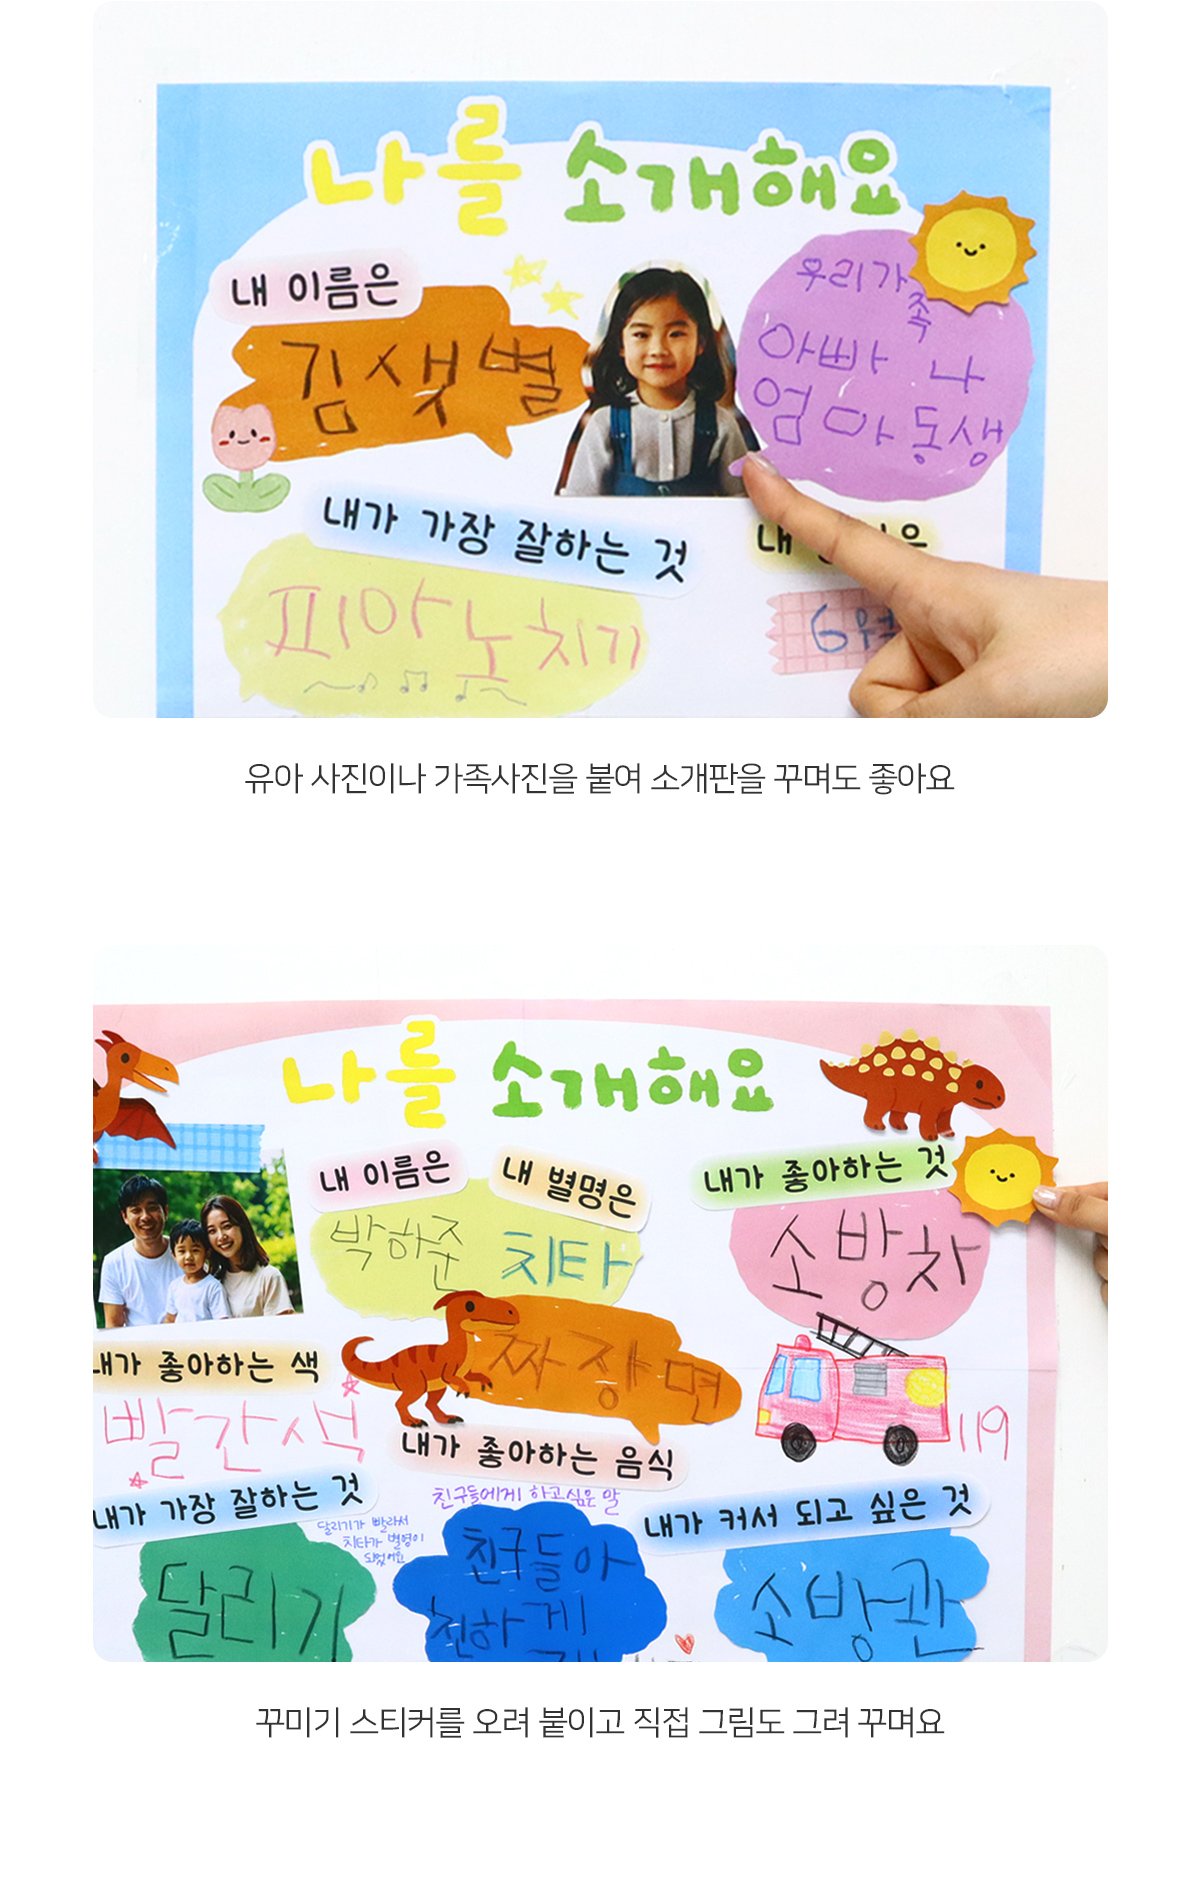 나를 소개해요
내 이름은
김샛별
우리가
족
아빠 나
엄마 동생
내가 가장 잘하는 것
내
피아노치기
6월
유아 사진이나 가족사진을 붙여 소개판을 꾸며도 좋아요
나를 소개해요
내 이름은
내 별명은
내가 좋아하는 것
박하준
치타
소방차
내가 좋아하는 색
짜장면
빨간색
119
내가 좋아하는 음식
내가 가장 잘하는 것
친구들에게 하고싶은 말
내가 커서 되고 싶은 것
달리기가 빨라서
치타가 별명이
되었어요
달리기
친구들아
친하게
소방관
꾸미기 스티커를 오려 붙이고 직접 그림도 그려 꾸며요